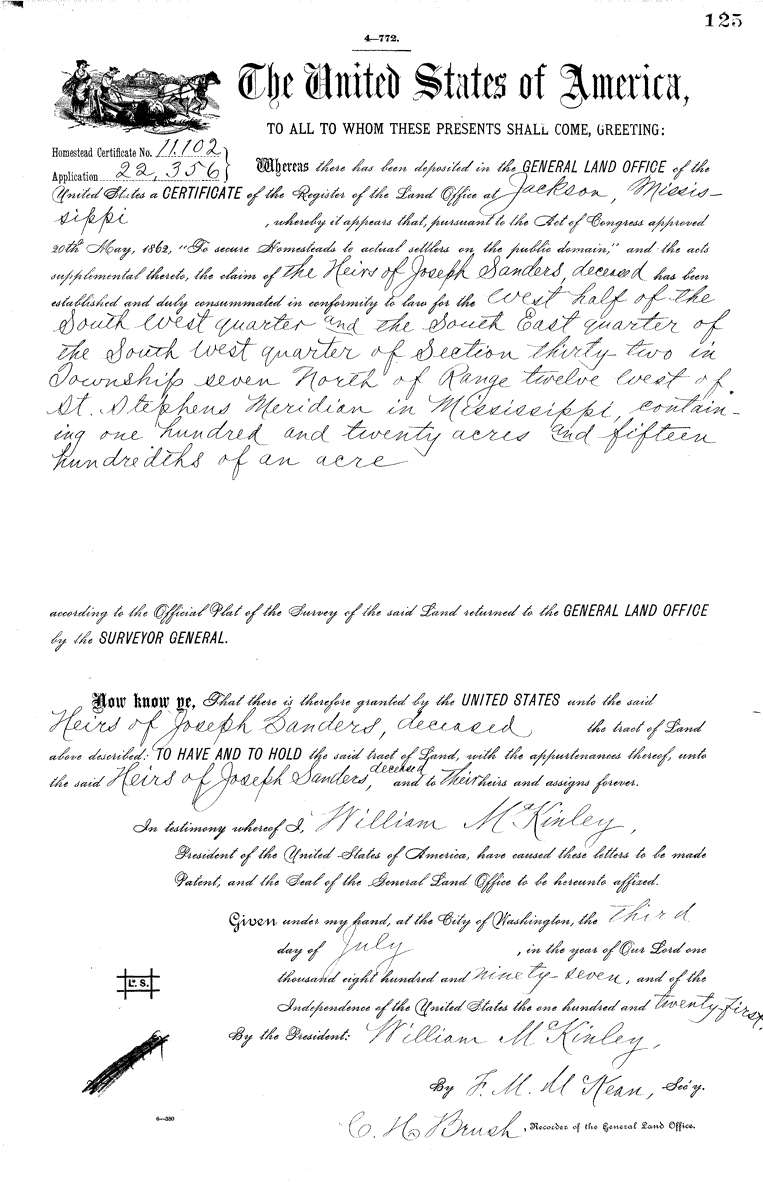 125
4—772.
The United States of America,
TO ALL TO WHOM THESE PRESENTS SHALL COME, GREETING:
Homestead Certificate No. 11.102
Application 22,356
Whereas there has been deposited in the GENERAL LAND OFFICE of the
United States a CERTIFICATE of the Register of the Land Office at Jackson, Missis-
sippi , whereby it appears that, pursuant to the Act of Congress approved
20th May, 1862, "To secure Homesteads to actual settlers on the public domain," and the acts
supplemental thereto, the claim of the Heirs of Joseph Sanders, deceased has been
established and duly consummated in conformity to law for the West half of the
South West quarter and the South East quarter of
the South West quarter of Section thirty two in
Township seven North of Range twelve West of
St. Stephens Meridian in Mississippi, contain-
ing one hundred and twenty acres and fifteen
hundredths of an acre
according to the Official Plat of the Survey of the said Land returned to the GENERAL LAND OFFICE
by the SURVEYOR GENERAL.
Now know ye, That there is therefore granted by the UNITED STATES unto the said
Heirs of Joseph Sanders, deceased the tract of Land
above described: TO HAVE AND TO HOLD the said tract of Land, with the appurtenances thereof, unto
the said Heirs of Joseph Sanders, deceased and to Their heirs and assigns forever.
In testimony whereof I, William McKinley,
President of the United States of America, have caused these letters to be made
Patent, and the Seal of the General Land Office to be hereunto affixed.
Given under my hand, at the City of Washington, the Third
day of July , in the year of Our Lord one
thousand eight hundred and ninety-seven, and of the
Independence of the United States the one hundred and twenty-first.
L. S.
By the President: William McKinley,
By F. M. McKean, Sec'y.
6—380
C. H. Brush, Recorder of the General Land Office.